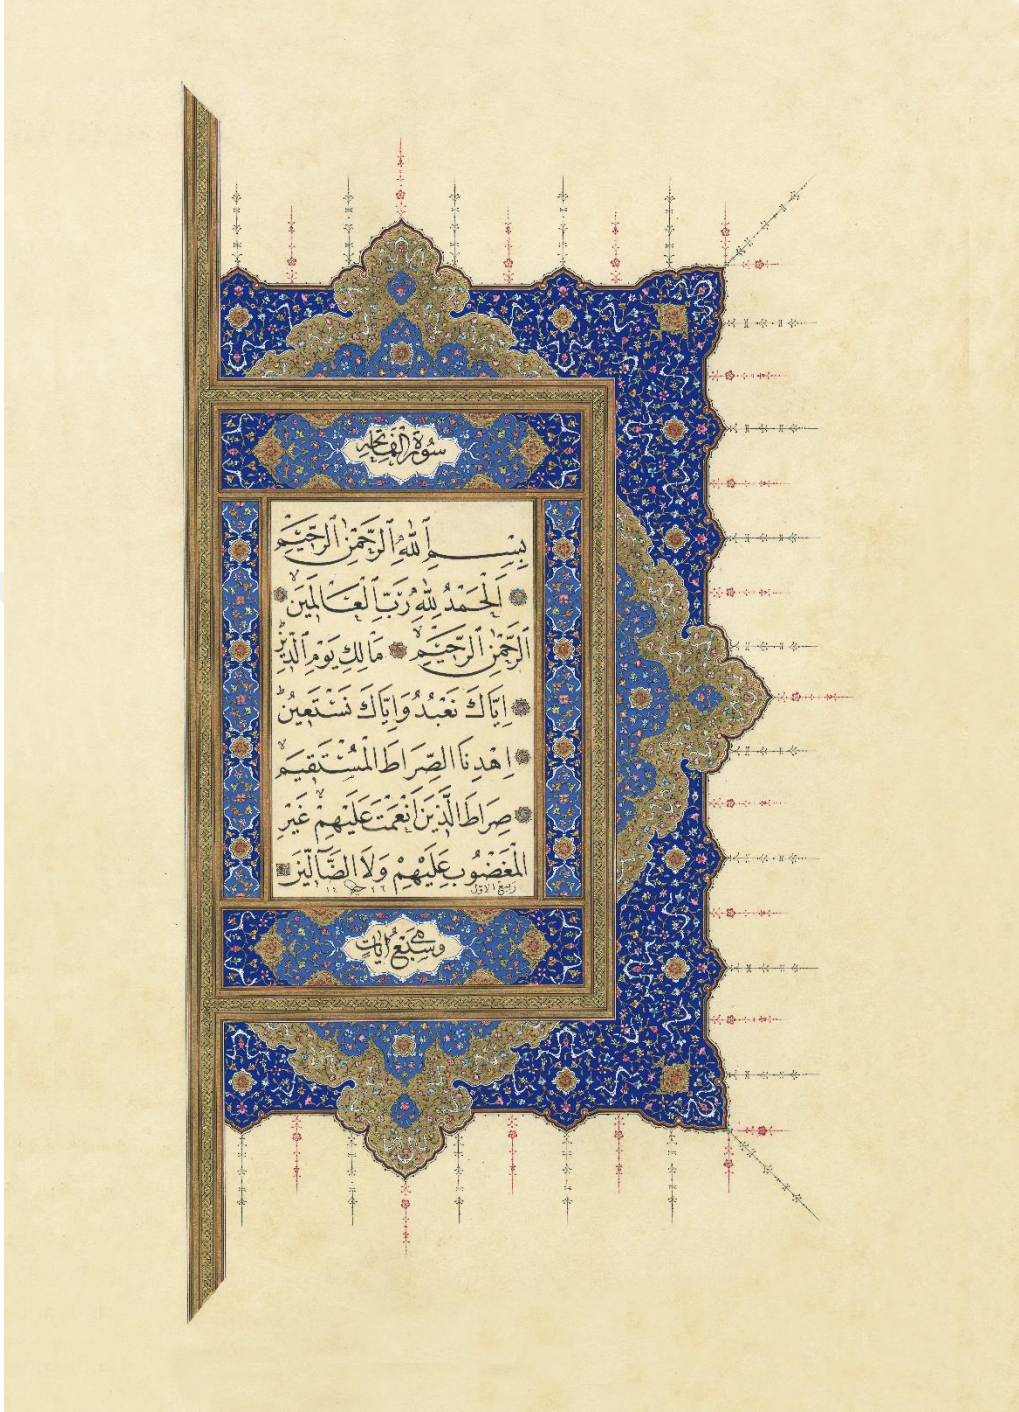 سُورَةُ الْفَاتِحَةِ
بِسْمِ ٱللّٰهِ ٱلرَّحْمٰنِ ٱلرَّحِيمِ
اَلْحَمْدُ لِلّٰهِ رَبِّ ٱلْعَالَمِينَ
ٱلرَّحْمٰنِ ٱلرَّحِيمِ مَالِكِ يَوْمِ ٱلدِّينِ
اِيَّاكَ نَعْبُدُ وَاِيَّاكَ نَسْتَعِينُ
اِهْدِنَا الصِّرَاطَ الْمُسْتَقِيمَ
صِرَاطَ الَّذِينَ اَنْعَمْتَ عَلَيْهِمْ غَيْرِ
الْمَغْضُوبِ عَلَيْهِمْ وَلَا الضَّآلِّينَ
ربيع الاول
وَهِيَ سَبْعُ اٰيَاتٍ